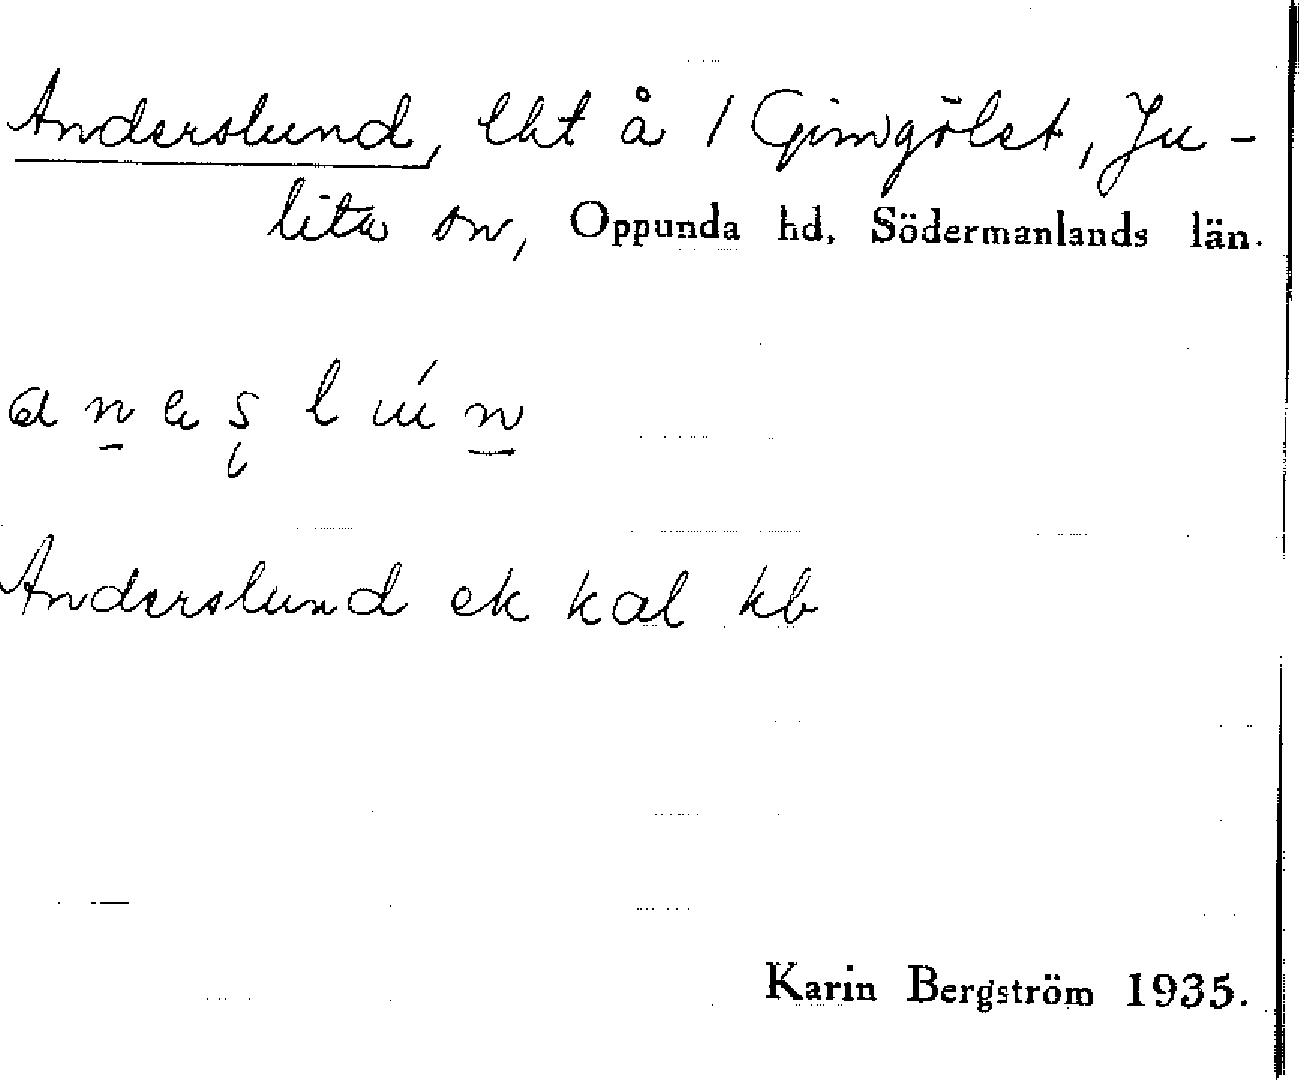 Anderslund, lht å / Gimgölet, Ju-
lita sn, Oppunda hd, Södermanlands län.
Anderslund ek kal kb
Karin Bergström 1935.